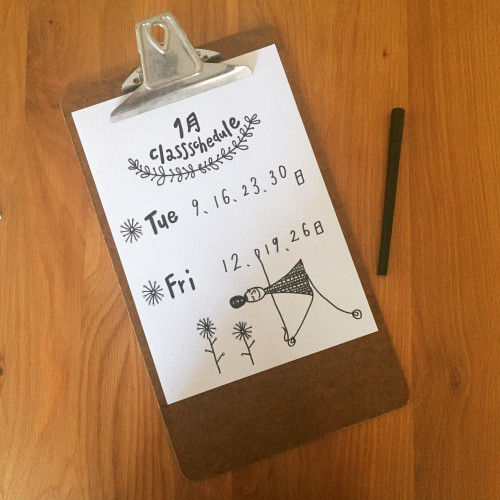 1月
classschedule
Tue 9、16、23、30日
Fri 12、19、26日